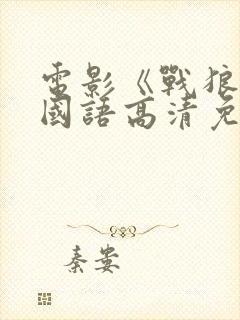 電影《戰狼
國語高清免
秦裳